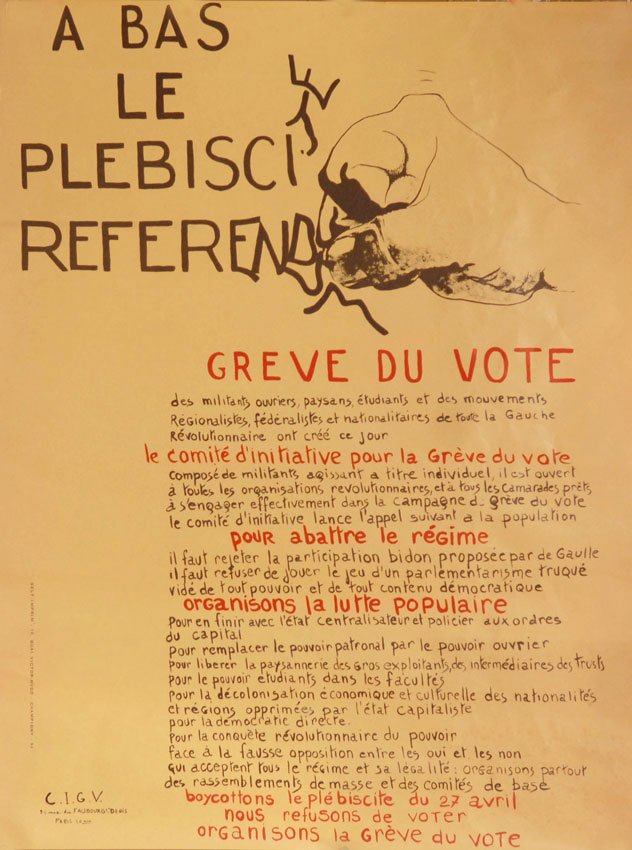 A BAS
LE
PLEBISCIT
REFERENDUM
GREVE DU VOTE
des militants ouvriers, paysans, étudiants et des mouvements
Régionalistes, fédéralistes et nationalitaires de toute la Gauche
Révolutionnaire ont créé ce jour
le comité d'initiative pour la Grève du vote
composé de militants agissant a titre individuel, il est ouvert
à toutes les organisations revolutionnaires, et à tous les camarades prêts
à s'engager effectivement dans la campagne de grève du vote
le comité d'initiative lance l'appel suivant a la population
pour abattre le régime
il faut rejeter la participation bidon proposée par de Gaulle
il faut refuser de jouer le jeu d'un parlementarisme truqué
vidé de tout pouvoir et de tout contenu démocratique
organisons la lutte populaire
Pour en finir avec l'état centralisateur et policier aux ordres
du capital
pour remplacer le pouvoir patronal par le pouvoir ouvrier
pour liberer la paysannerie des gros exploitants, des intermédiaires, des trusts
Pour le pouvoir etudiants dans les facultés
Pour la décolonisation économique et culturelle des nationalités
et régions opprimées par l'état capitaliste
pour la démocratie directe.
Pour la conquête révolutionnaire du pouvoir
face à la fausse opposition entre les oui et les non
qui acceptent tous le régime et sa légalité : organisons partout
des rassemblements de masse et des comités de base
boycottons le plébiscite du 27 avril
nous refusons de voter
organisons la Grève du vote
C.I.G.V.
rue du FAUBOURG St DENIS
PARIS 10ème